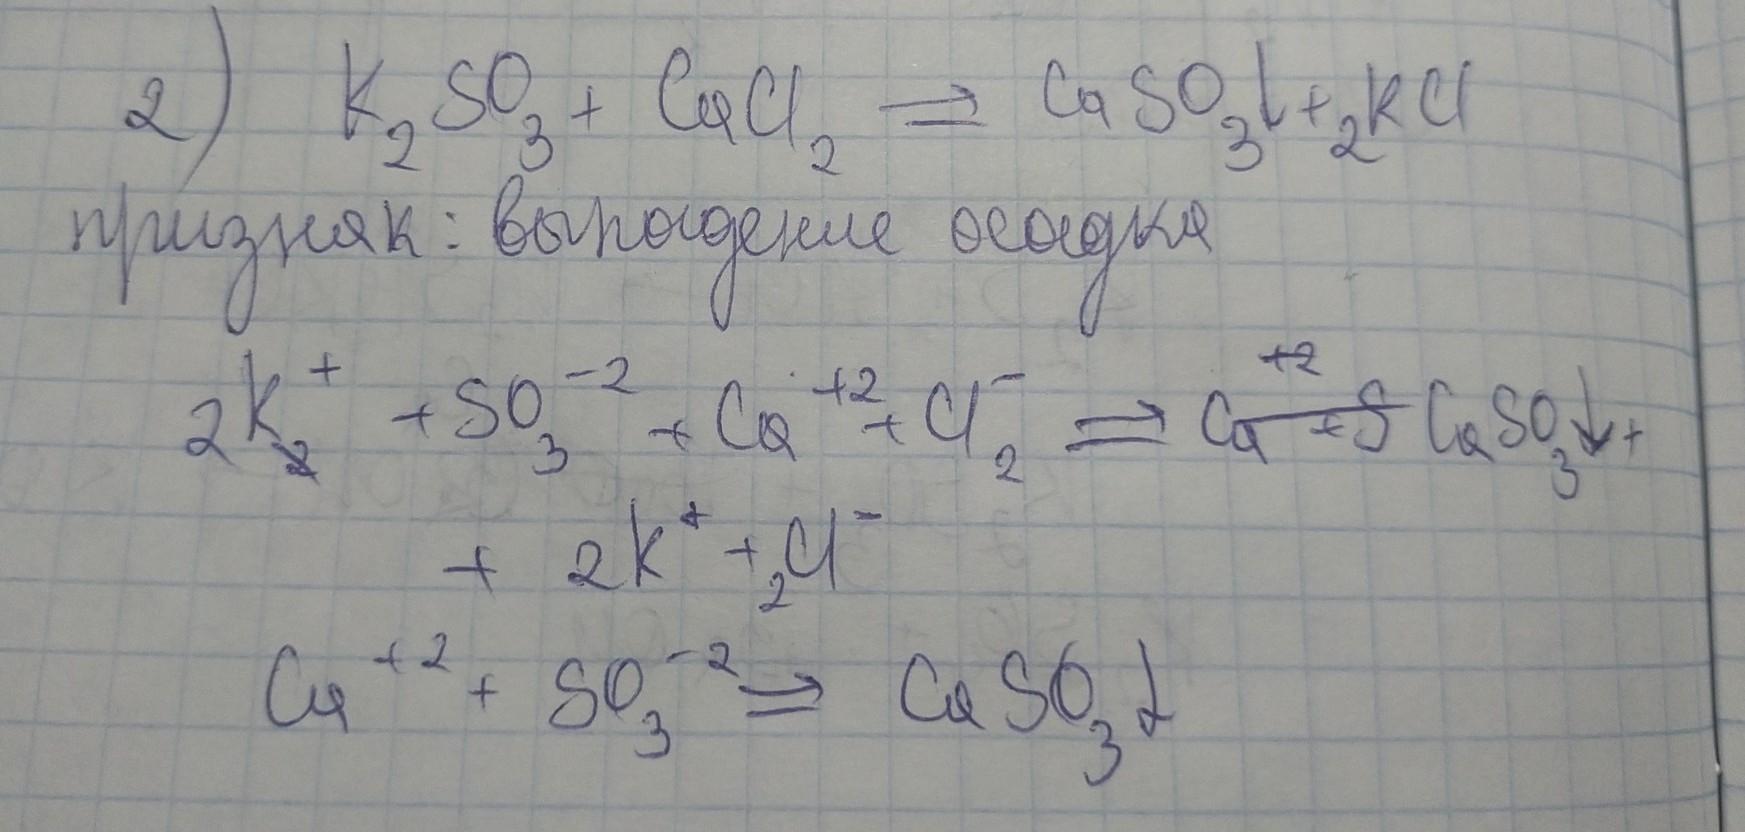 2) K₂SO₃ + CaCl₂ ⇒ CaSO₃↓ + 2KCl
признак: выпадение осадка
2K⁺ + SO₃⁻² + Ca⁺² + Cl₂⁻ ⇒ CaSO₃↓ +
+ 2K⁺ + 2Cl⁻
Ca⁺² + SO₃⁻² ⇒ CaSO₃↓